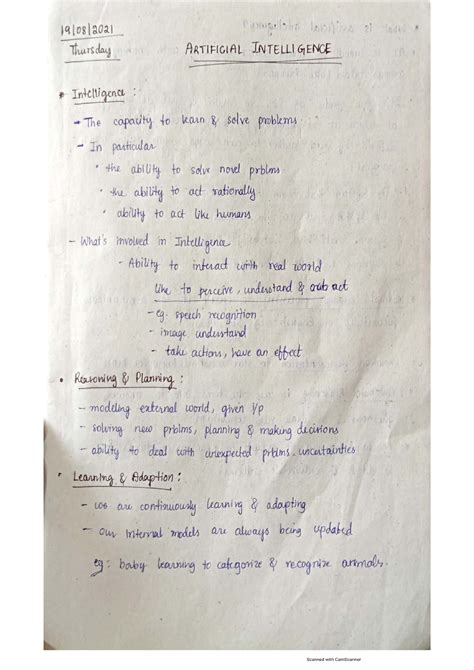 19/08/2021
Thursday
ARTIFICIAL INTELLIGENCE
* Intelligence :
→ The capacity to learn & solve problems
- In particular
• the ability to solve novel prblms
• the ability to act rationally
• ability to act like humans
- What's involved in Intelligence
- Ability to interact with real world
like to perceive, understand & act
- eg. speech recognition
- image understand
- take actions, have an effect
• Reasoning & Planning :
- modeling external world, given i/p
- solving new prblms, planning & making decisions
- ability to deal with unexpected prblms, uncertainties
• Learning & Adaption :
- we are continuously learning & adapting
- our internal models are always being updated
eg: baby learning to categorize & recognize animals.
Scanned with CamScanner